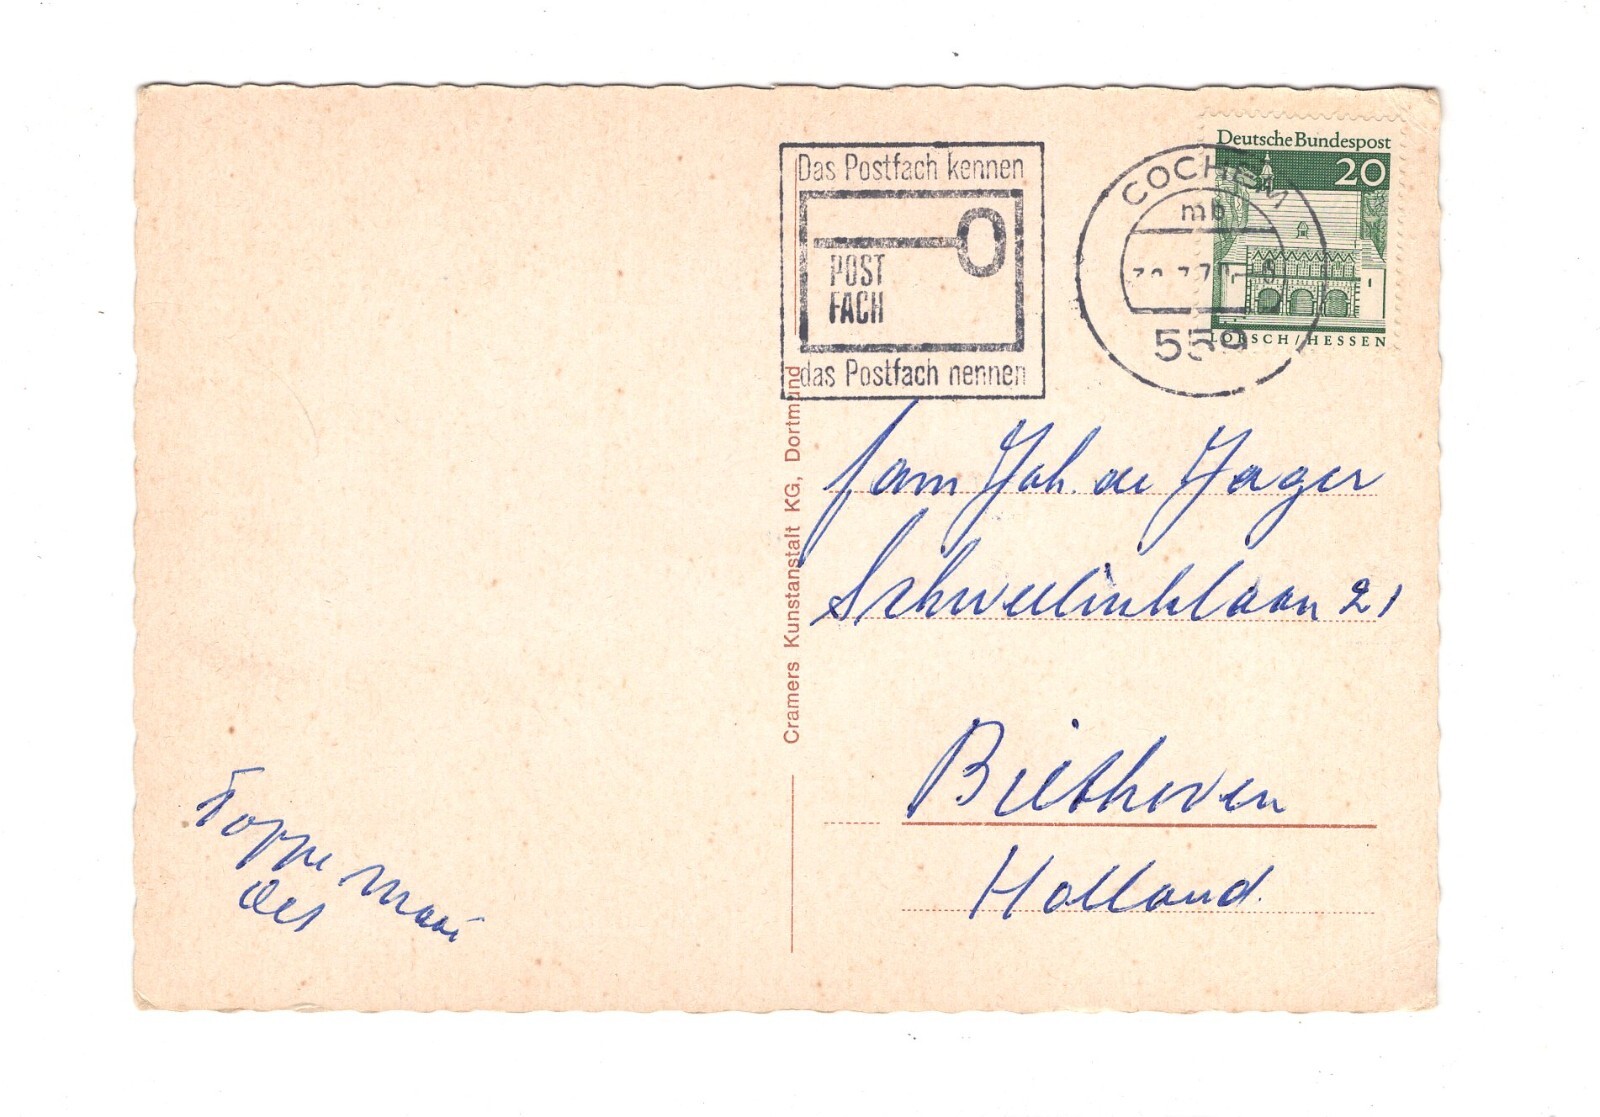 Das Postfach kennen
POST
FACH
das Postfach nennen
COCHEM
mb
559
Deutsche Bundespost
20
LORSCH/HESSEN
Cramers Kunstanstalt KG, Dortmund
fam Joh. de Jager
Schweelinklaan 21
Bilthoven
Holland.